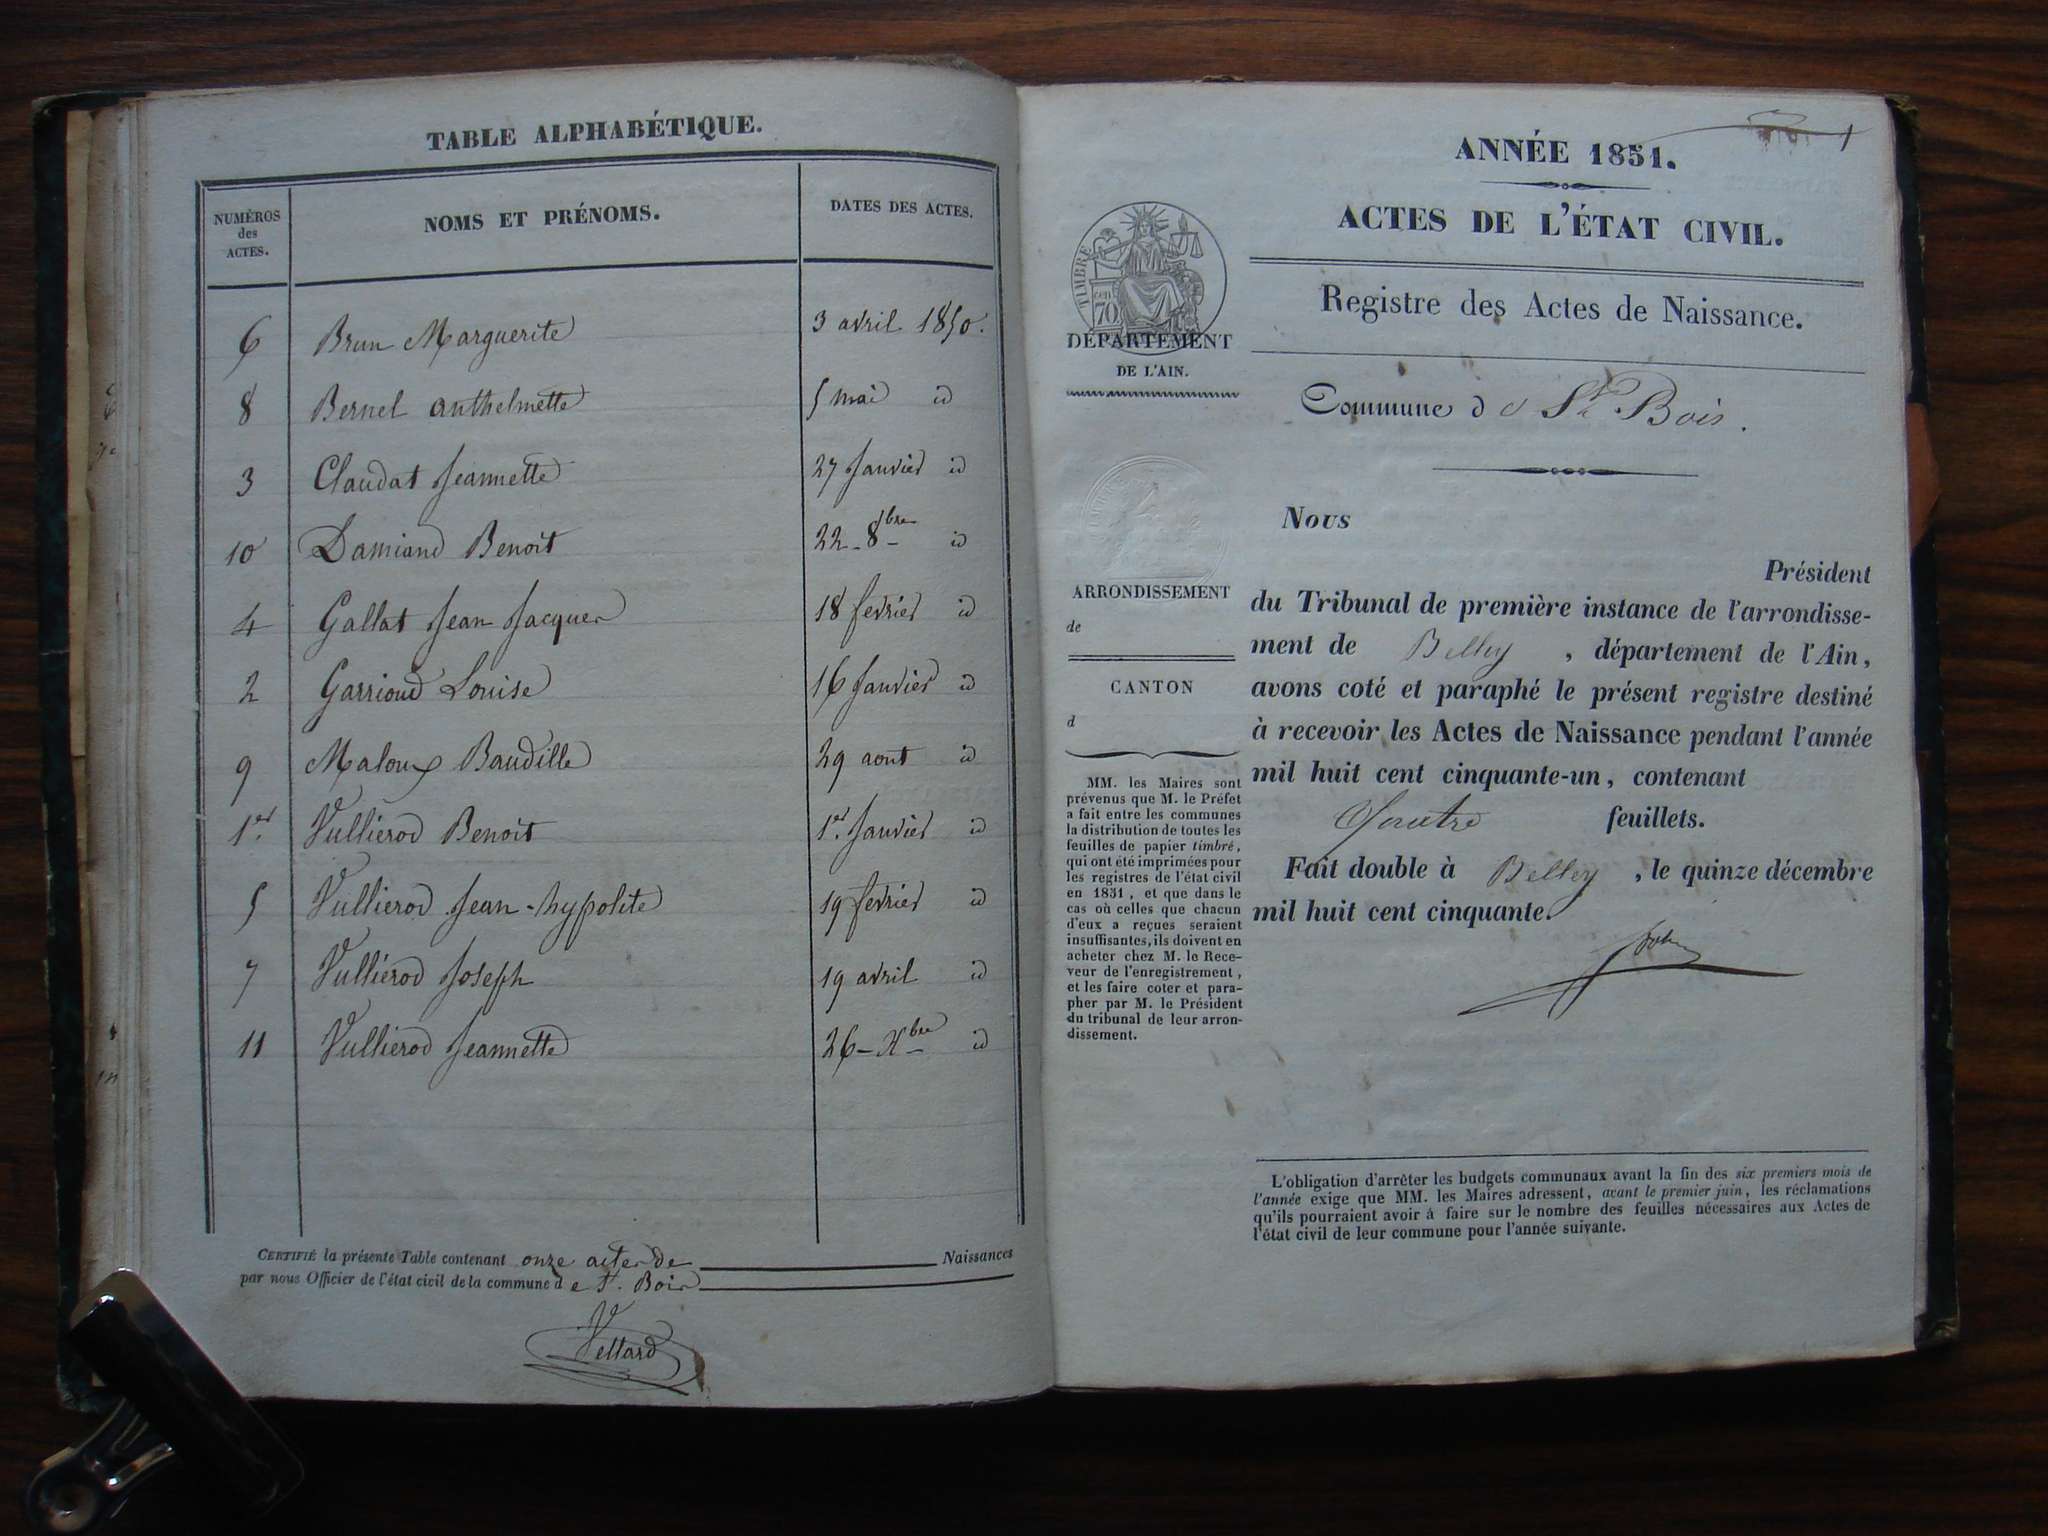 TABLE ALPHABÉTIQUE.
NUMÉROS des ACTES. NOMS ET PRÉNOMS. DATES DES ACTES.
6 Brun Marguerite 3 avril 1850.
8 Bernel anthelmette 5 mai id
3 Claudat Jeannette 27 Janvier id
10 Damiand Benoit 22 - 8bre - id
4 Gallat Jean Jacques 18 fevrier id
2 Garrioud Louise 16 Janvier id
9 Maloux Baudille 29 aout id
1er. Vullierod Benoit 1er. Janvier id
5 Vullierod Jean-hypolite 19 fevrier id
7 Vullierod Joseph 19 avril id
11 Vullierod Jeannette 26 - Xbre id
CERTIFIÉ la présente Table contenant onze actes de Naissances
par nous Officier de l'état civil de la commune de St. Bois
Vettard
1
ANNÉE 1851.
ACTES DE L'ÉTAT CIVIL.
Registre des Actes de Naissance.
TIMBRE
cen
70
DÉPARTEMENT
DE L'AIN.
Commune de St Bois.
ARRONDISSEMENT
de
CANTON
d
MM. les Maires sont
prévenus que M. le Préfet
a fait entre les communes
la distribution de toutes les
feuilles de papier timbré,
qui ont été imprimées pour
les registres de l'état civil
en 1851, et que dans le
cas où celles que chacun
d'eux a reçues seraient
insuffisantes, ils doivent en
acheter chez M. le Rece-
veur de l'enregistrement,
et les faire coter et para-
pher par M. le Président
du tribunal de leur arron-
dissement.
Nous
Président
du Tribunal de première instance de l'arrondisse-
ment de Belley, département de l'Ain,
avons coté et paraphé le présent registre destiné
à recevoir les Actes de Naissance pendant l'année
mil huit cent cinquante-un, contenant
feuillets.
Fait double à Belley, le quinze décembre
mil huit cent cinquante.
L'obligation d'arrêter les budgets communaux avant la fin des six premiers mois de
l'année exige que MM. les Maires adressent, avant le premier juin, les réclamations
qu'ils pourraient avoir à faire sur le nombre des feuilles nécessaires aux Actes de
l'état civil de leur commune pour l'année suivante.